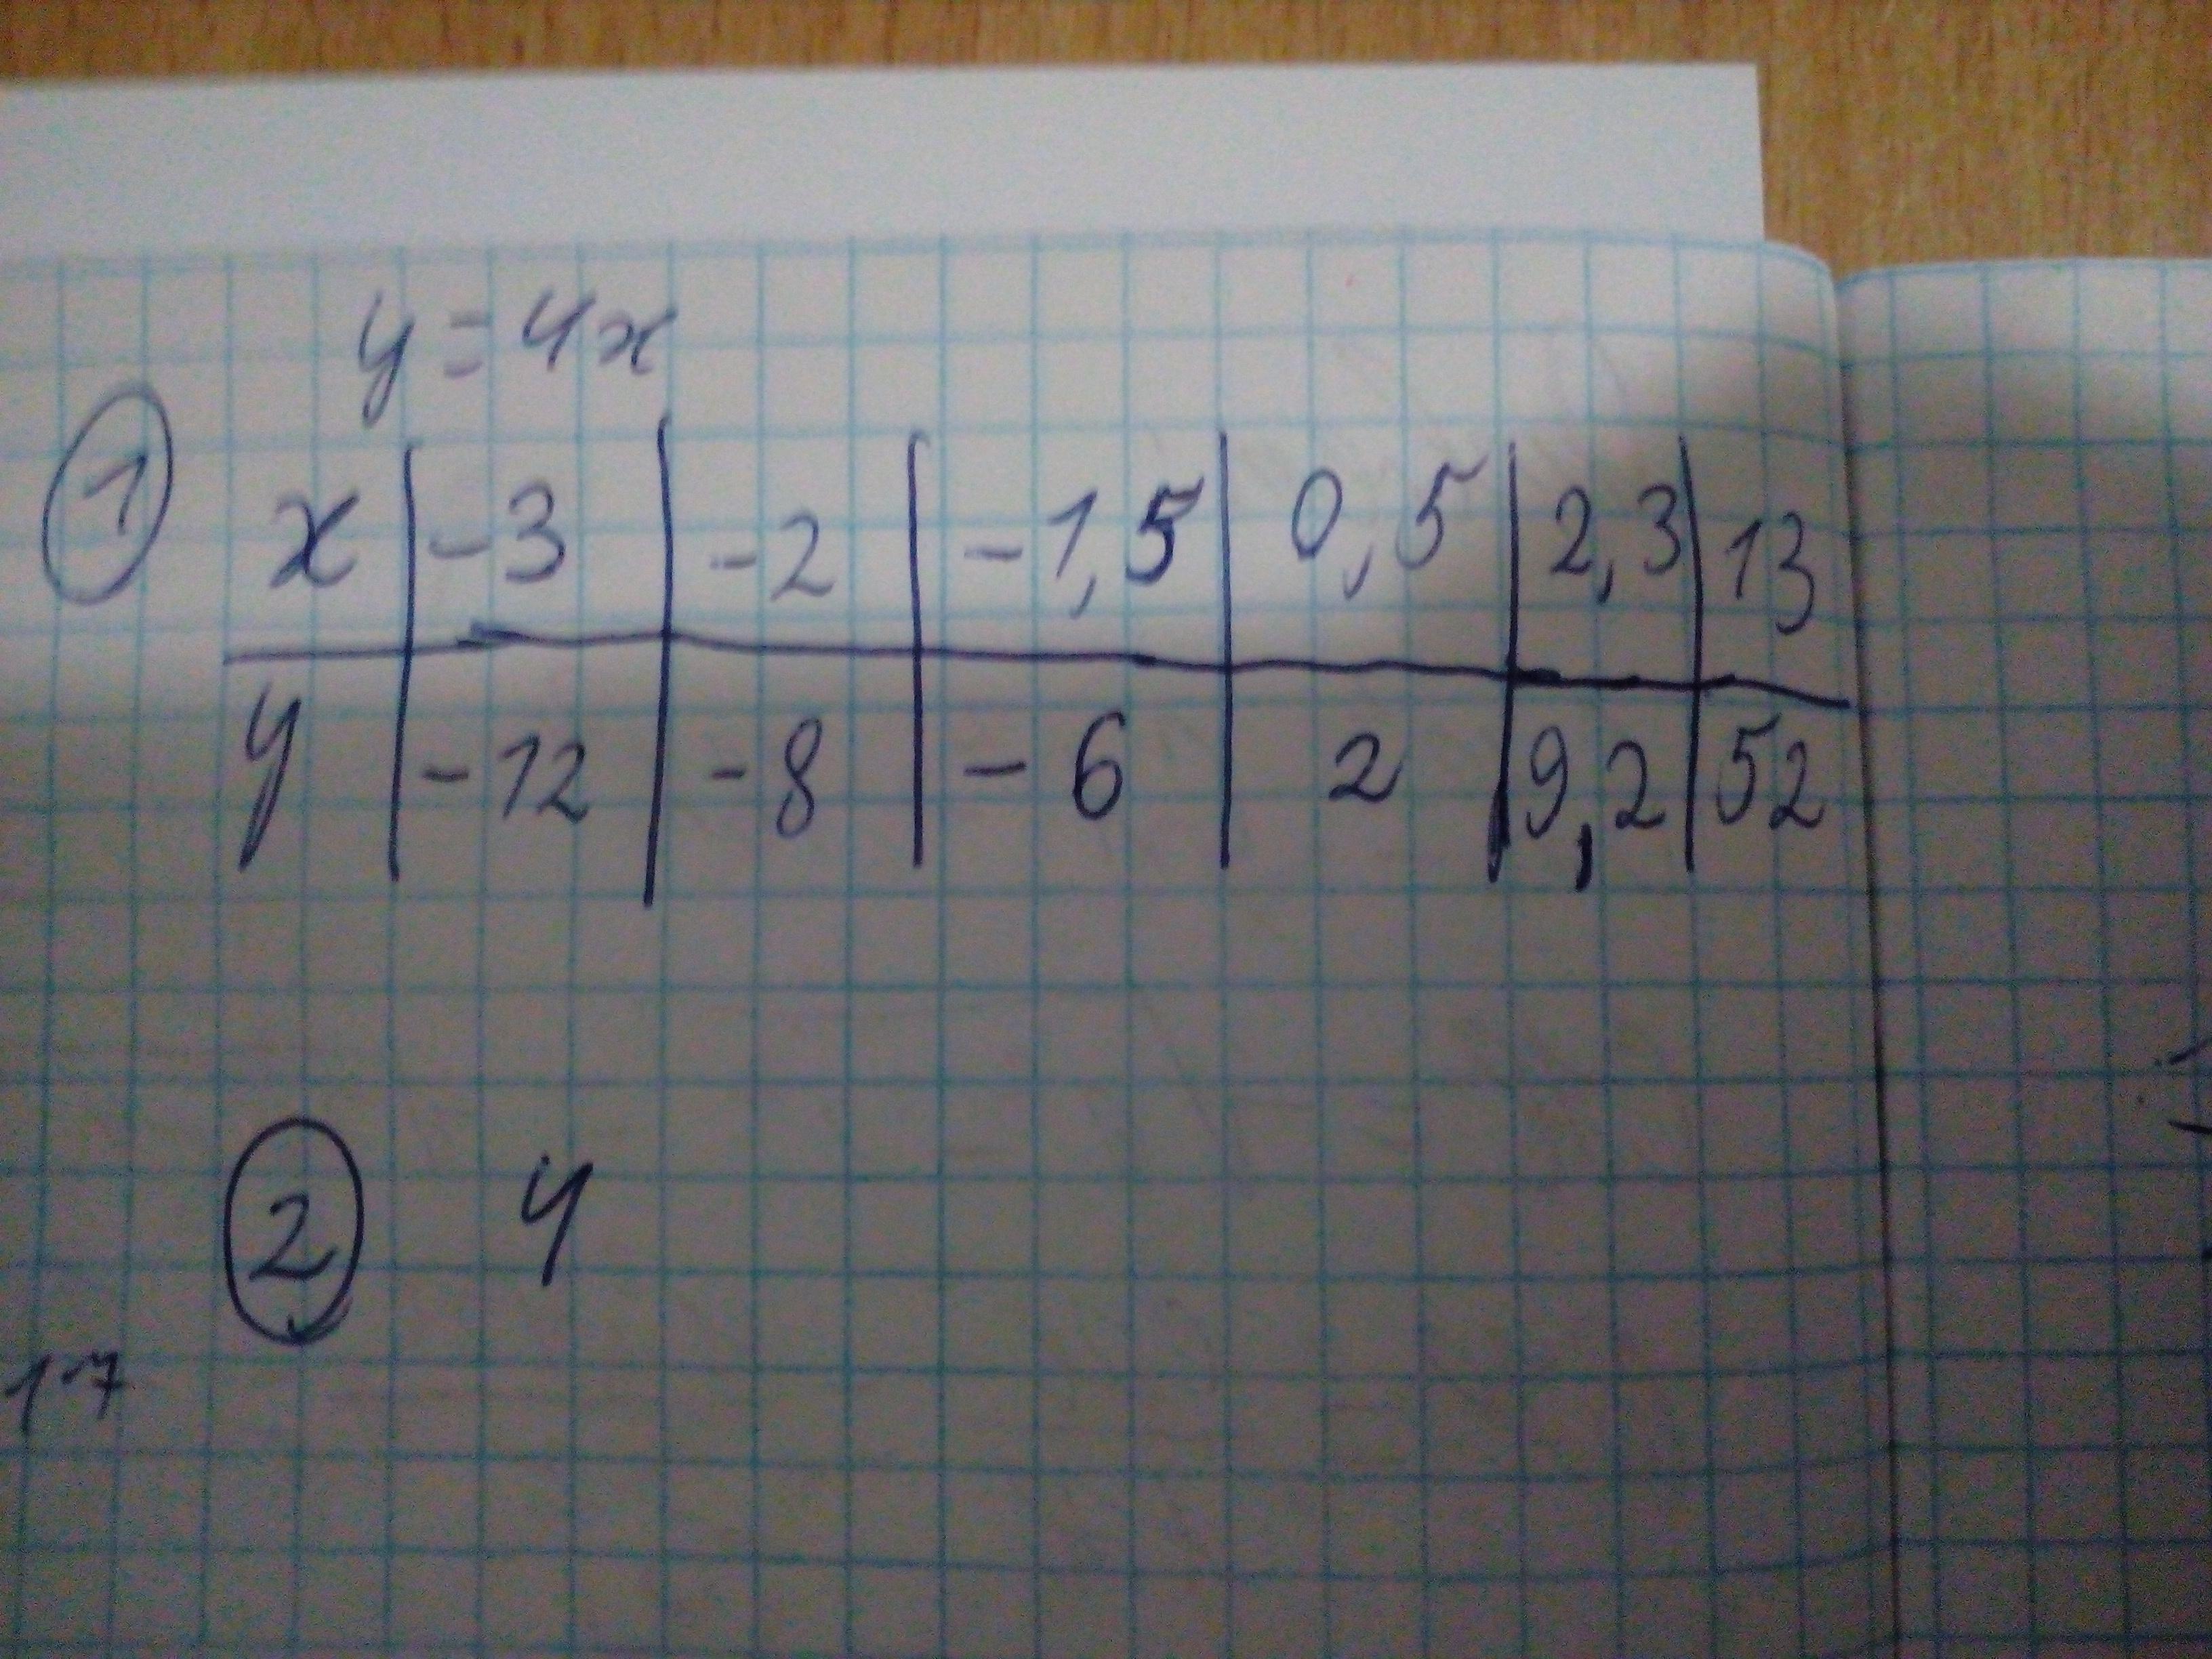 y = 4x
1 x | -3 | -2 | -1,5 | 0,5 | 2,3 | 13
y | -12 | -8 | -6 | 2 | 9,2 | 52
2 4
17